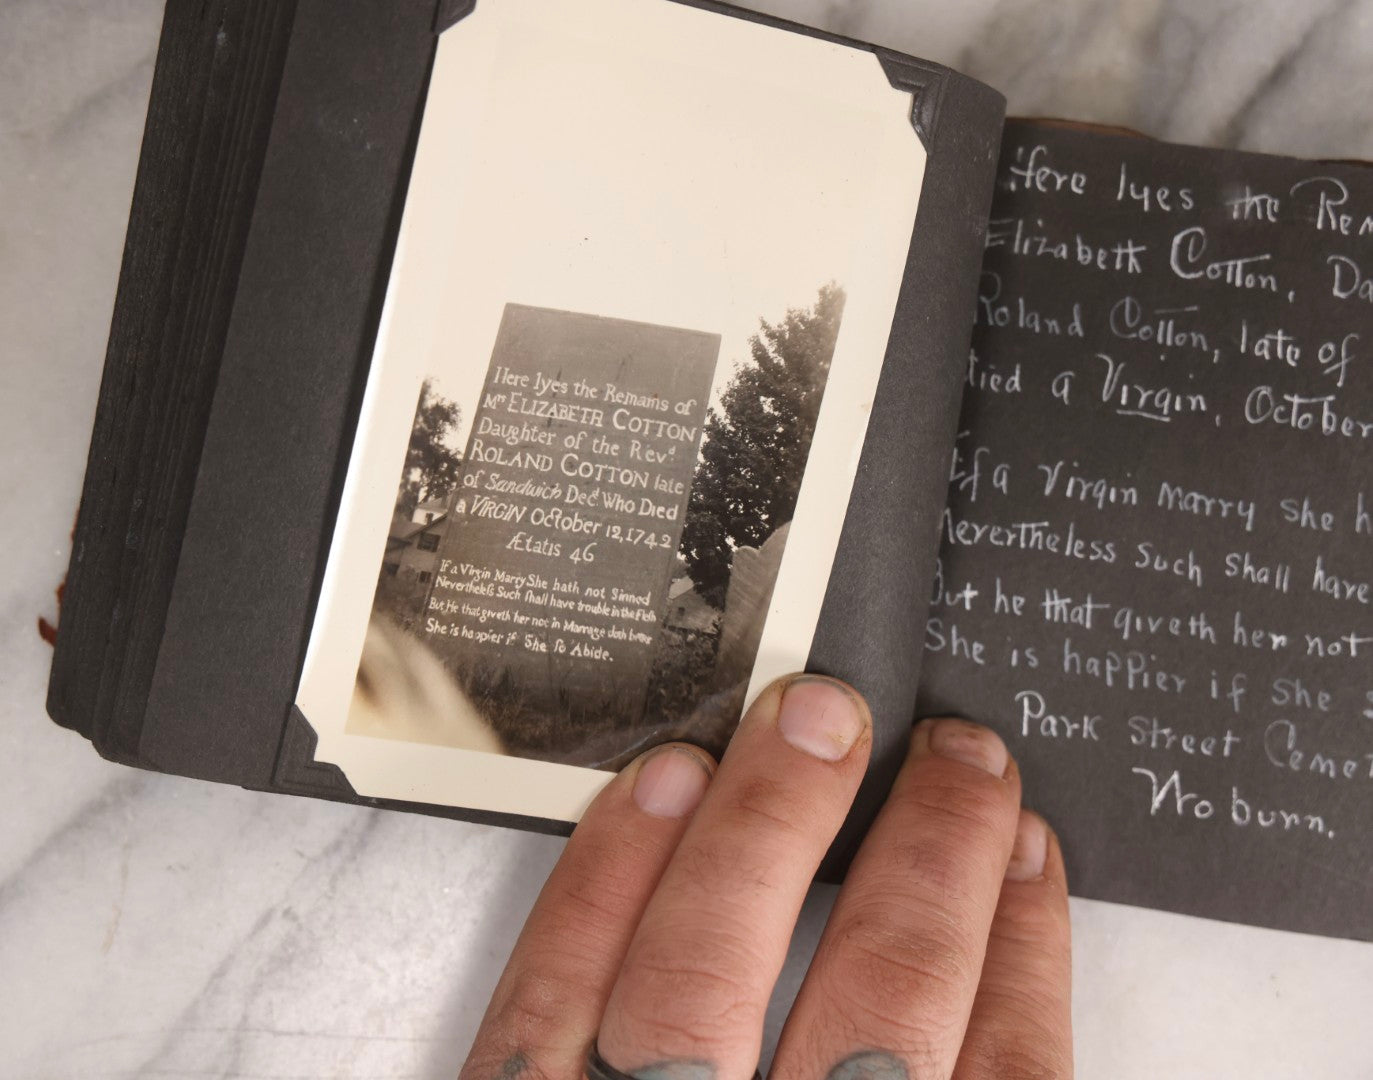 Here lyes the Remains of
Mrs ELIZABETH COTTON
Daughter of the Revd.
ROLAND COTTON late
of Sandwich Decd. Who Died
a VIRGIN October 12, 1742
Ætatis 46
If a Virgin Marry She hath not Sinned
Nevertheless Such shall have trouble in the Flesh
But He that giveth her not in Marriage doth better
She is happier if She so Abide.
Here lyes the Rem
Elizabeth Cotton, Da
Roland Cotton, late of
died a Virgin, October
If a Virgin marry she h
Nevertheless such shall have
But he that giveth her not
She is happier if she s
Park Street Cemet
Woburn.